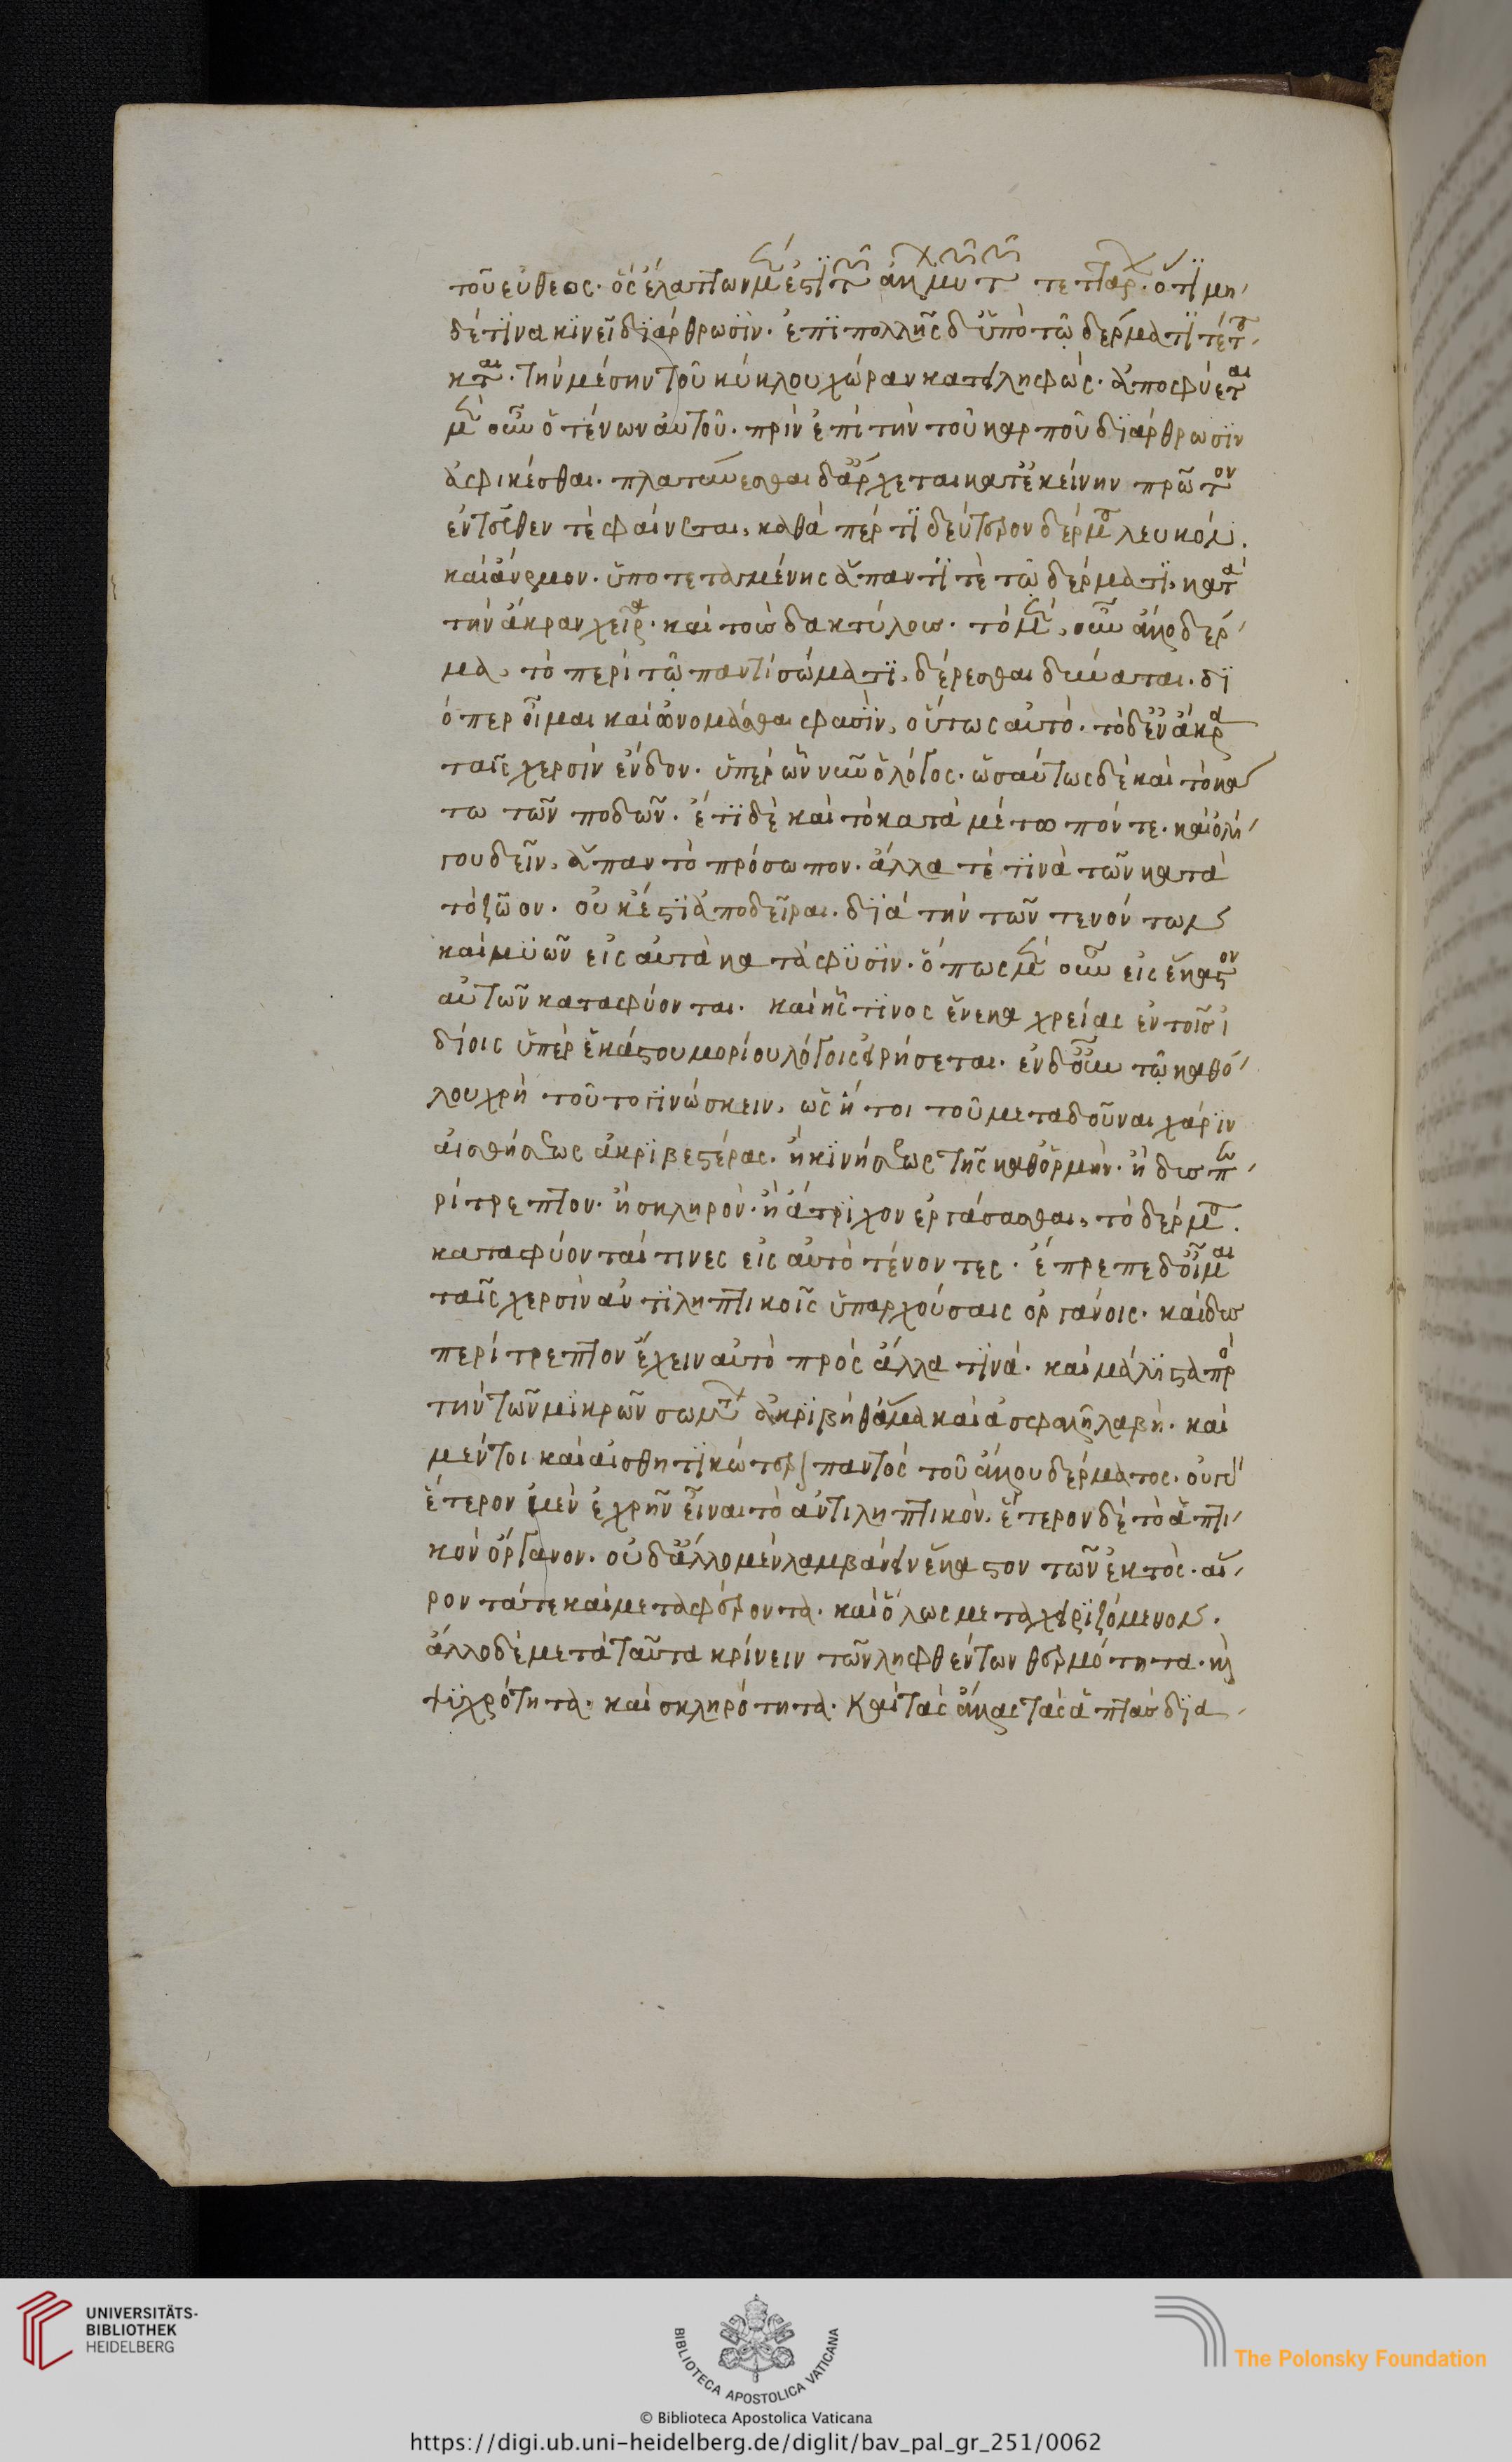 τοῦ εὐθέος. ὃς ἐλάττων μέν ἐστι τῶν ἄλλων τῶν τεττάρων. ὅτι μη
δέ τινα κινεῖ διάρθρωσιν. ἐπιπολῆς δ' ὑπὸ τῷ δέρματι τέτα
κται. τὴν μέσην τοῦ κύκλου χώραν κατειληφώς. ἀποφύεται
μὲν οὖν ὁ τένων αὐτοῦ. πρὶν ἐπὶ τὴν τοῦ καρποῦ διάρθρωσιν
ἀφικέσθαι. πλατύνεσθαι δ' ἄρχεται κατ' ἐκείνην πρῶτον
ἐντεῦθέν τε φαίνεται, καθάπερ τι δεύτερον δέρμα λευκόν.
καὶ ἄναιμον. ὑποτεταμένης ἅπαντί τε τῷ δέρματι, κατὰ
τὴν ἄκραν χεῖρα. καὶ τοῖς δακτύλοις. τὸ μὲν, οὖν ἄλλο δέρ
μα, τὸ περὶ τῷ παντὶ σώματι, δέρεσθαι δύναται. δι
όπερ οἶμαι καὶ ὠνομάσθαι φασὶν, οὕτως αὐτό. τὸ δ' ἐν ἄκρα
ταῖς χερσὶν ἔνδον. ὑπὲρ ὧν νῦν ὁ λόγος. ὡσαύτως δὲ καὶ τὸ κά
τω τῶν ποδῶν. ἔτι δὲ καὶ τὸ κατὰ μέτωπόν τε. καὶ ὀλί
γου δεῖν, ἅπαν τὸ πρόσωπον. ἄλλα τέ τινα τῶν κατὰ
τὸ ζῷον. οὐκ ἔστι ἀποδεῖραι. διὰ τὴν τῶν τενόντων
καὶ μυῶν εἰς αὐτὰ κατάφυσιν. ὅπως μὲν οὖν εἰς ἕκαστον
αὐτῶν καταφύονται. καὶ ἧς τινος ἕνεκα χρείας ἐν τοῖς ἰ
δίοις ὑπὲρ ἑκάστου μορίου λόγοις εἰρήσεται. ἐν δ' οὖν τῷ καθό
λου χρὴ τοῦτο γινώσκειν, ὡς ἤτοι τοῦ μεταδοῦναι χάριν
αἰσθήσεως ἀκριβεστέρας. ἢ κινήσεως τῆς καθ' ὁρμήν. ἢ δυσπε
ρίτρεπτον. ἢ σκληρόν. ἢ ἄτριχον ἐργάσασθαι, τὸ δέρμα.
καταφύονταί τινες εἰς αὐτὸ τένοντες. ἔπρεπε δ' οἶμαι
ταῖς χερσὶν ἀντιληπτικοῖς ὑπαρχούσαις ὀργάνοις. καὶ δυσ
περίτρεπτον ἔχειν αὐτὸ πρὸς ἄλλα τινά. καὶ μάλιστα πρὸς
τὴν τῶν μικρῶν σωμάτων ἀκριβῆ θ' ἅμα καὶ ἀσφαλῆ λαβή. καὶ
μέντοι καὶ αἰσθητικώτερον παντὸς τοῦ ἄλλου δέρματος. οὐ γὰρ
ἕτερον μὲν ἐχρῆν εἶναι τὸ ἀντιληπτικὸν, ἕτερον δὲ τὸ ἁπτι
κὸν ὄργανον. οὐδ' ἄλλο μὲν λαμβάνειν ἕκαστον τῶν ἐκτὸς. αἶ
ρον τά τε καὶ μεταφέροντα. καὶ ὅλως μεταχειριζόμενον.
ἄλλο δὲ μετὰ ταῦτα κρίνειν τῶν ληφθέντων θερμότητα. καὶ
ψυχρότητα. καὶ σκληρότητα. καὶ τὰς ἄλλας τὰς ἁπτὰς δια
UNIVERSITÄTS-
BIBLIOTHEK
HEIDELBERG
BIBLIOTECA APOSTOLICA VATICANA
The Polonsky Foundation
© Biblioteca Apostolica Vaticana
https://digi.ub.uni-heidelberg.de/diglit/bav_pal_gr_251/0062